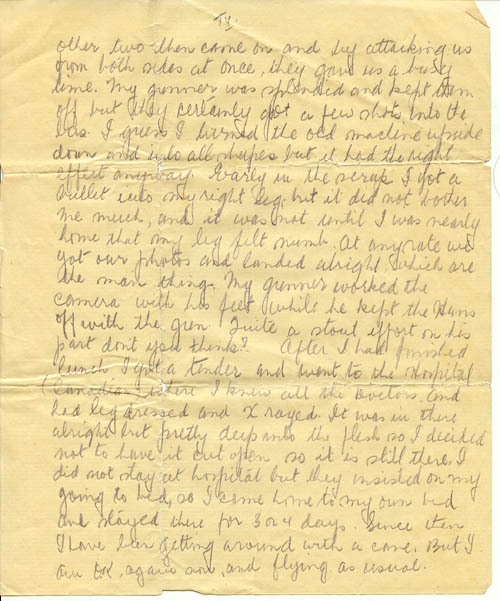 IV.
other two then came on and by attacking us
from both sides at once, they gave us a busy
time. My gunner was splendid and kept them
off but they certainly got a few shots into the
bus. I guess I turned the old machine upside
down and into all shapes but it had the right
effect anyway. Early in the scrap I got a
bullet into my right leg, but it did not bother
me much, and it was not until I was nearly
home that my leg felt numb. At any rate we
got our photos and landed alright, which are
the main things. My gunner worked the
camera with his feet while he kept the Huns
off with the gun. Quite a stout effort on his
part don't you think? After I had finished
lunch I got a tender and went to the Hospital
(Canadian) where I knew all the Doctors, and
had leg dressed and X rayed. It was in there
alright but pretty deep into the flesh so I decided
not to have it cut open so it is still there. I
did not stay at hospital but they insisted on my
going to bed, so I came home to my own bed
and stayed there for 3 or 4 days. Since then
I have been getting around with a cane. But I
am OK, again now, and flying as usual.